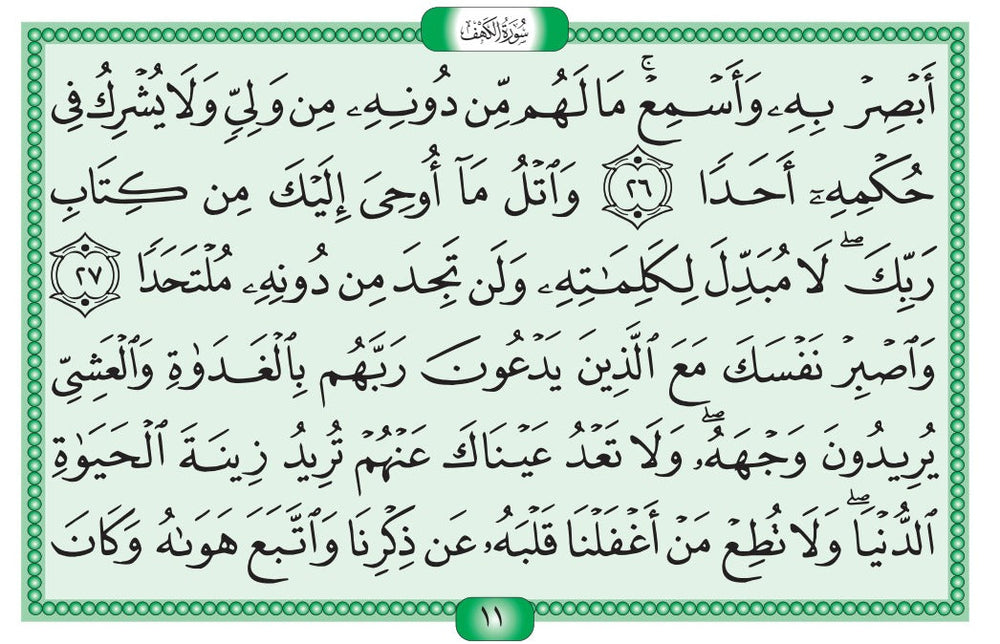 سُورَةُ الكَهْفِ
أَبْصِرْ بِهِۦ وَأَسْمِعْ ۚ مَا لَهُم مِّن دُونِهِۦ مِن وَلِيٍّ وَلَا يُشْرِكُ فِى
حُكْمِهِۦٓ أَحَدًا ٢٦ وَٱتْلُ مَآ أُوحِىَ إِلَيْكَ مِن كِتَابِ
رَبِّكَ ۖ لَا مُبَدِّلَ لِكَلِمَـٰتِهِۦ وَلَن تَجِدَ مِن دُونِهِۦ مُلْتَحَدًا ٢٧
وَٱصْبِرْ نَفْسَكَ مَعَ ٱلَّذِينَ يَدْعُونَ رَبَّهُم بِٱلْغَدَوٰةِ وَٱلْعَشِىِّ
يُرِيدُونَ وَجْهَهُۥ ۖ وَلَا تَعْدُ عَيْنَاكَ عَنْهُمْ تُرِيدُ زِينَةَ ٱلْحَيَوٰةِ
ٱلدُّنْيَا ۖ وَلَا تُطِعْ مَنْ أَغْفَلْنَا قَلْبَهُۥ عَن ذِكْرِنَا وَٱتَّبَعَ هَوَىٰهُ وَكَانَ
١١